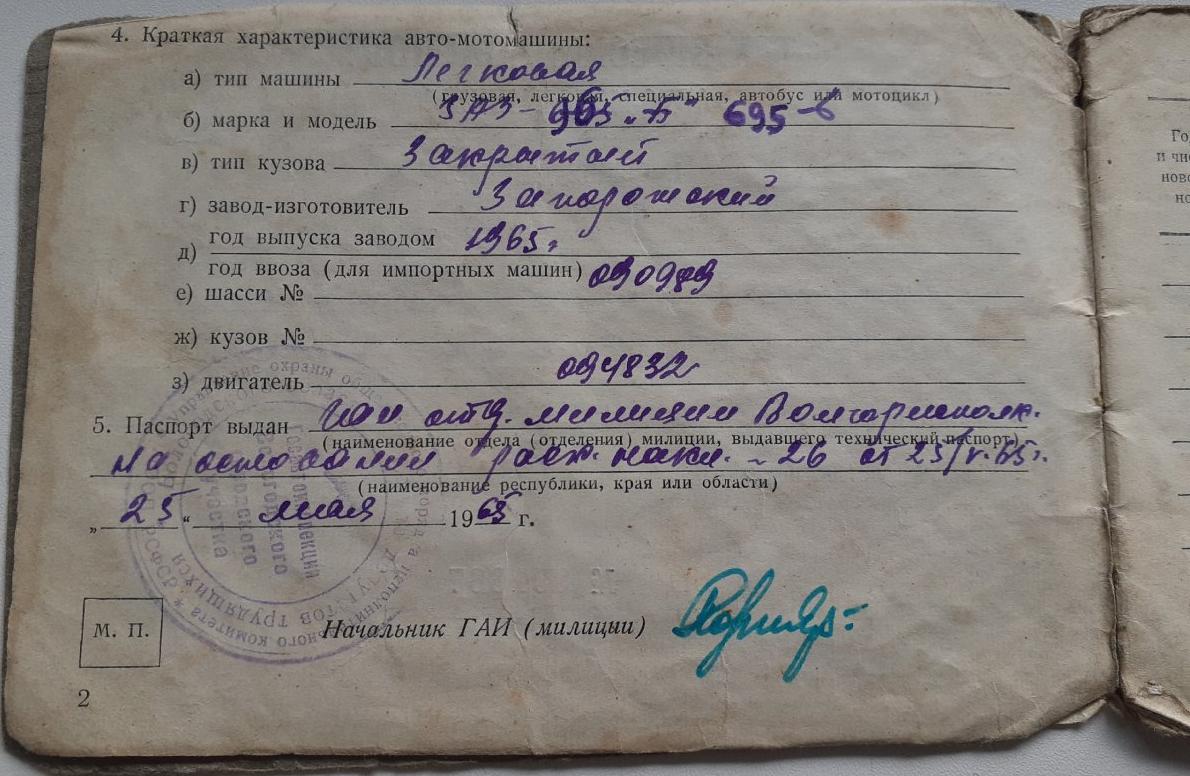 4. Краткая характеристика авто-мотомашины:
а) тип машины Легковая
(грузовая, легковая, специальная, автобус или мотоцикл)
б) марка и модель ЗАЗ-965 „Б“ 695-в
в) тип кузова Закрытый
г) завод-изготовитель Запорожский
д) год выпуска заводом 1965г.
год ввоза (для импортных машин)
е) шасси № 090989
ж) кузов №
з) двигатель 094832
5. Паспорт выдан ГАИ отд. милиции Волгорисполк.
(наименование отдела (отделения) милиции, выдавшего технический паспорт)
На основании расх. накл. - 26 от 25/V.65г.
(наименование республики, края или области)
„25“ мая 1965 г.
М. П.
Начальник ГАИ (милиции)
2